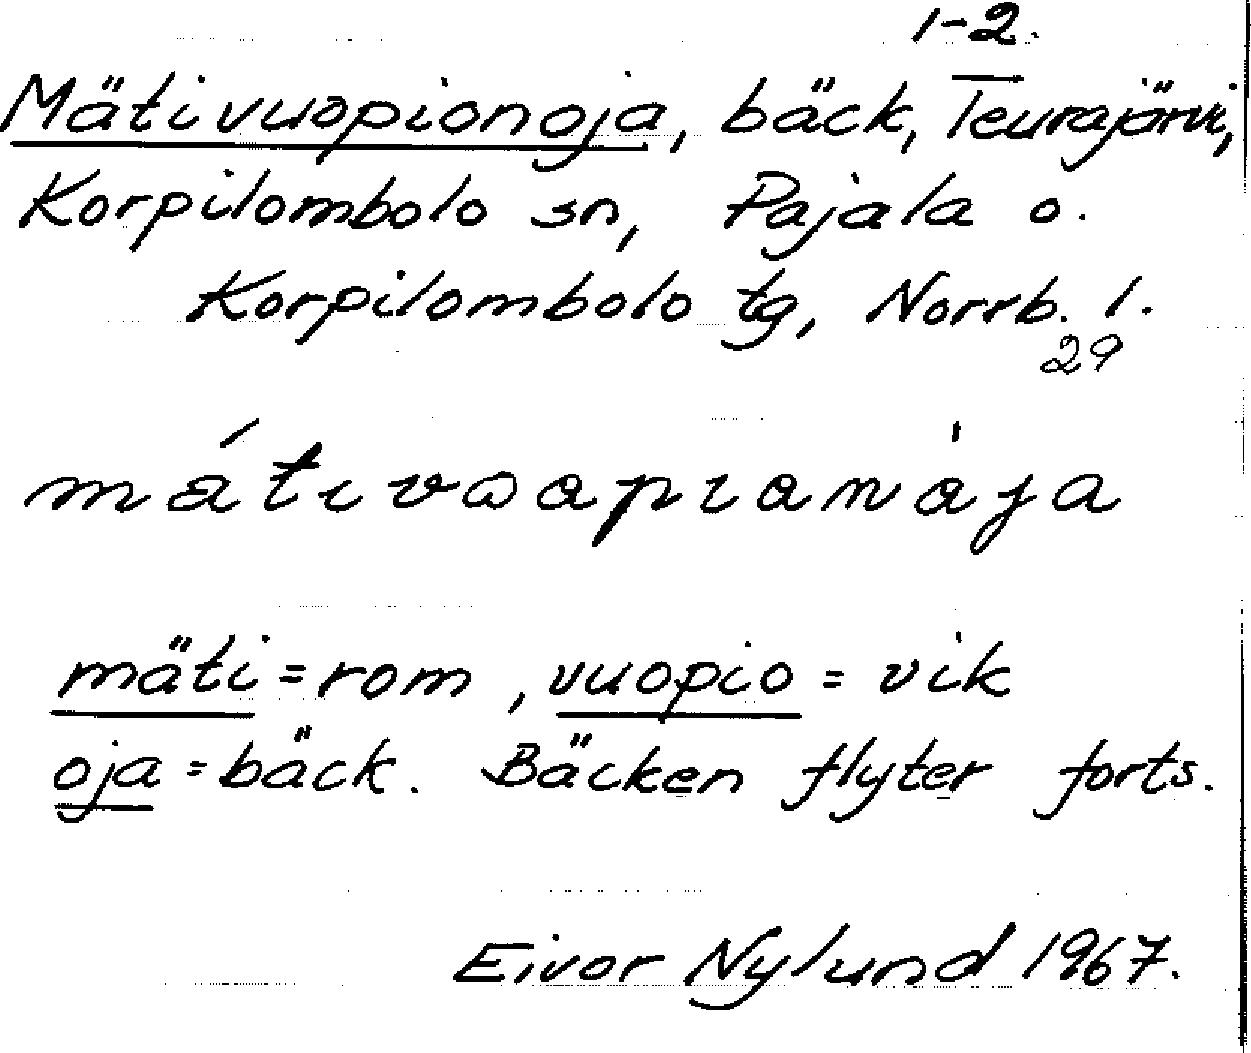 1-2.
Mätivuopionoja, bäck, Teurajärvi,
Korpilombolo sn, Pajala o.
Korpilombolo tg, Norrb. l.
29
mäti=rom, vuopio = vik
oja=bäck. Bäcken flyter forts.
Eivor Nylund 1967.